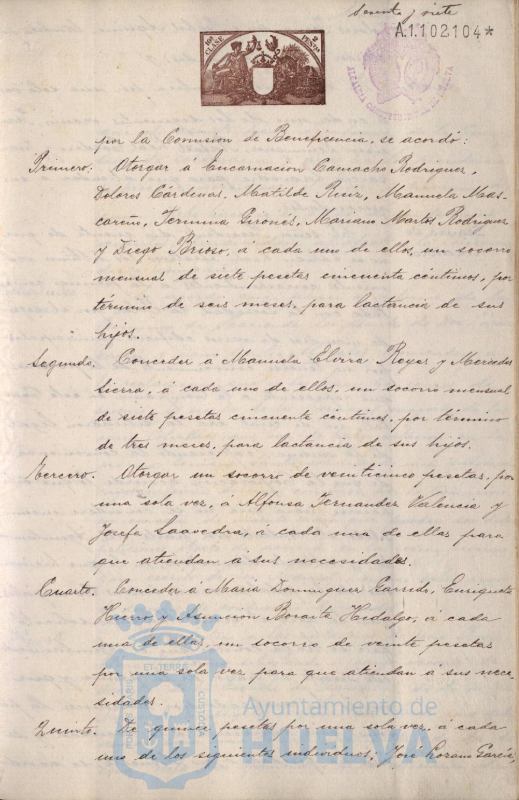 Sesenta y siete
A.1.102104*
10ª CLASE
2 PESETAS
por la Comision de Beneficencia, se acordó:
Primero: Otorgar á Encarnacion Camacho Rodriguez,
Dolores Cárdenas, Matilde Ruiz, Manuela Mas-
careño, Termina Gironés, Mariano Martos Rodriguez
y Diego Brioso, á cada uno de ellos, un socorro
mensual de siete pesetas cincuenta céntimos, por
término de seis meses, para lactancia de sus
hijos.
Segundo. Conceder á Manuela Elvira Reyes y Mercedes
Sierra, á cada uno de ellos, un socorro mensual
de siete pesetas cincuenta céntimos, por término
de tres meses, para lactancia de sus hijos.
Tercero. Otorgar un socorro de veinticinco pesetas, por
una sola vez, á Alfonsa Fernandez Valencia y
Josefa Saavedra, á cada una de ellas para
que atiendan á sus necesidades.
Cuarto. Conceder á María Dominguez Garrido, Enriqueta
Hierro y Asuncion Borarte Hidalgo, á cada
una de ellas, un socorro de veinte pesetas
por una sola vez, para que atiendan á sus nece-
sidades.
Quinto. De quince pesetas por una sola vez, á cada
uno de los siguientes individuos; José Lozano García,
Ayuntamiento de
HUELVA